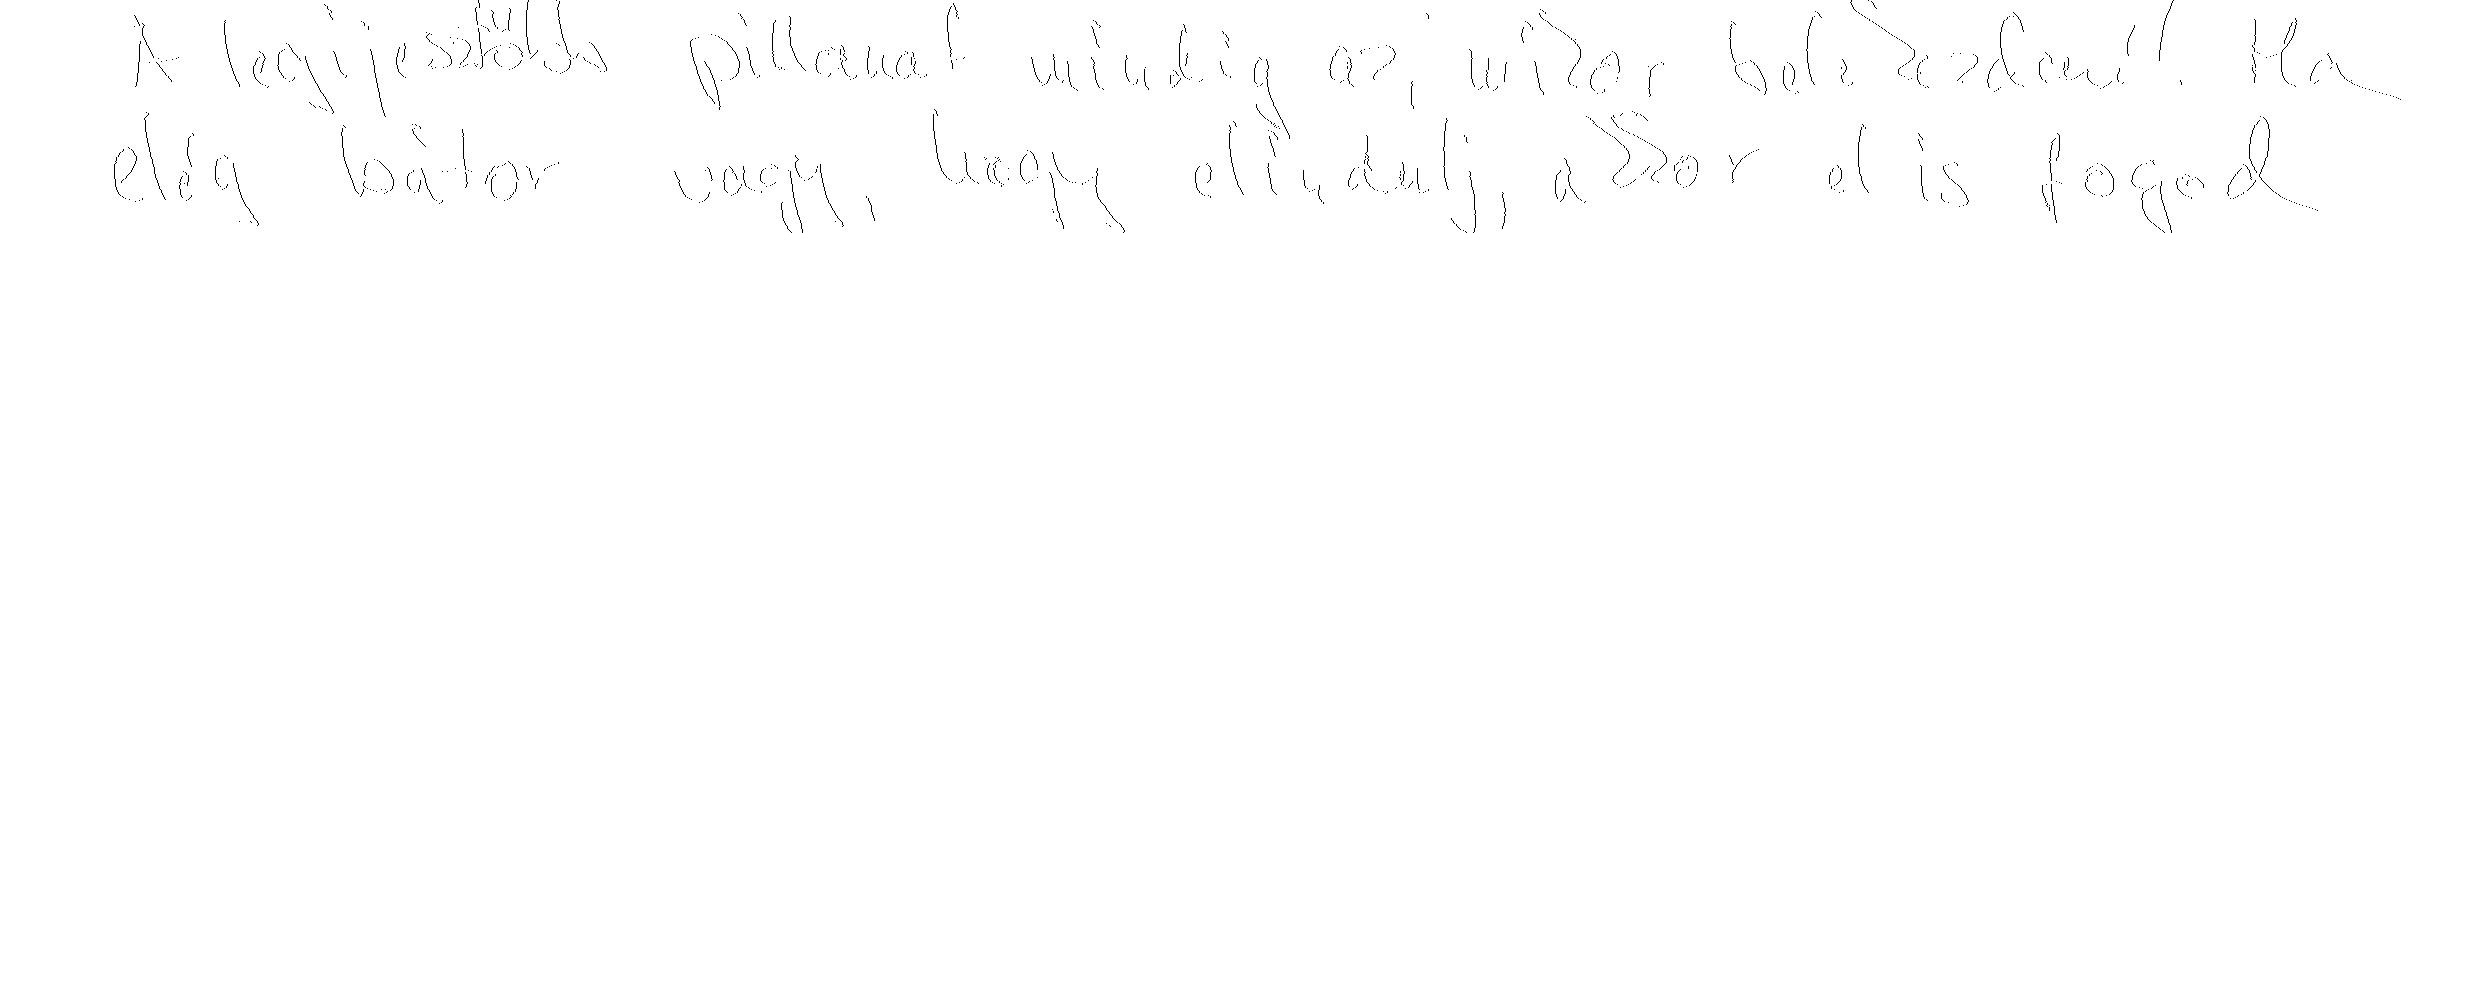 A legijesztőbb pillanat mindig az, mikor belekezdeni! Ha
elég bátor vagy, hogy elindulj, akkor el is fogod